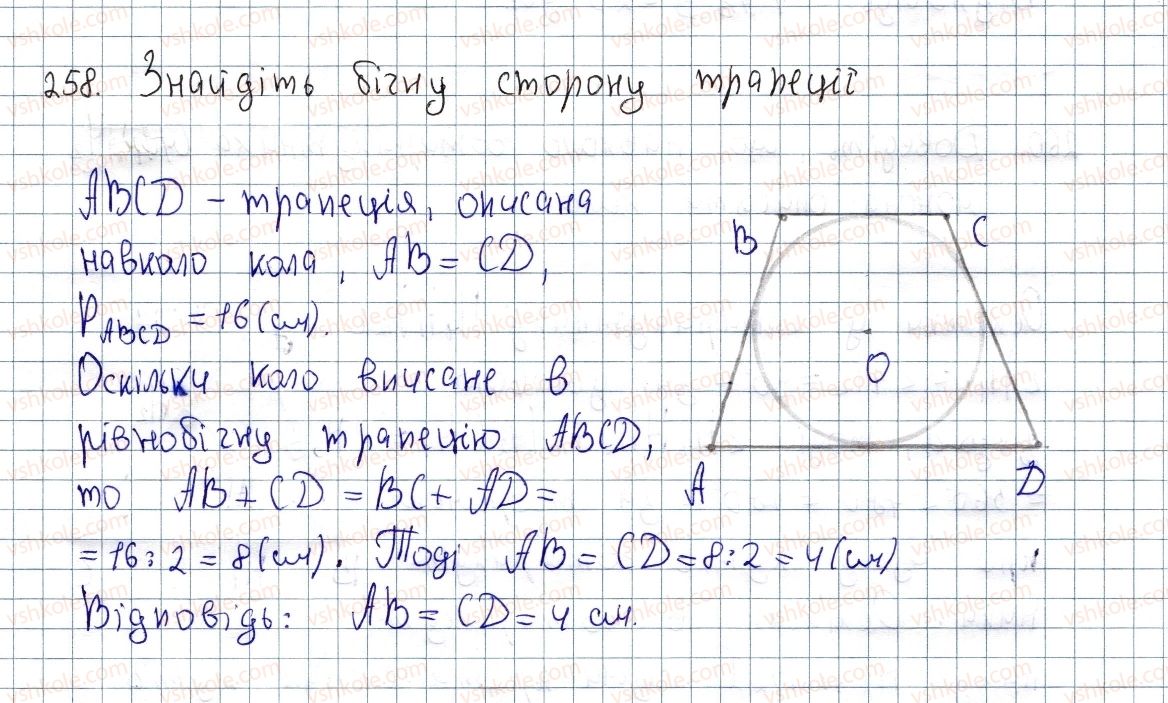 258. Знайдіть бічну сторону трапеції
ABCD – трапеція, описана
навколо кола, AB = CD,
P_ABCD = 16 (см).
Оскільки коло вписане в
рівнобічну трапецію ABCD,
то AB + CD = BC + AD =
= 16 : 2 = 8 (см). Тоді AB = CD = 8 : 2 = 4 (см).
Відповідь: AB = CD = 4 см.
B
C
O
A
D
vshkole.com